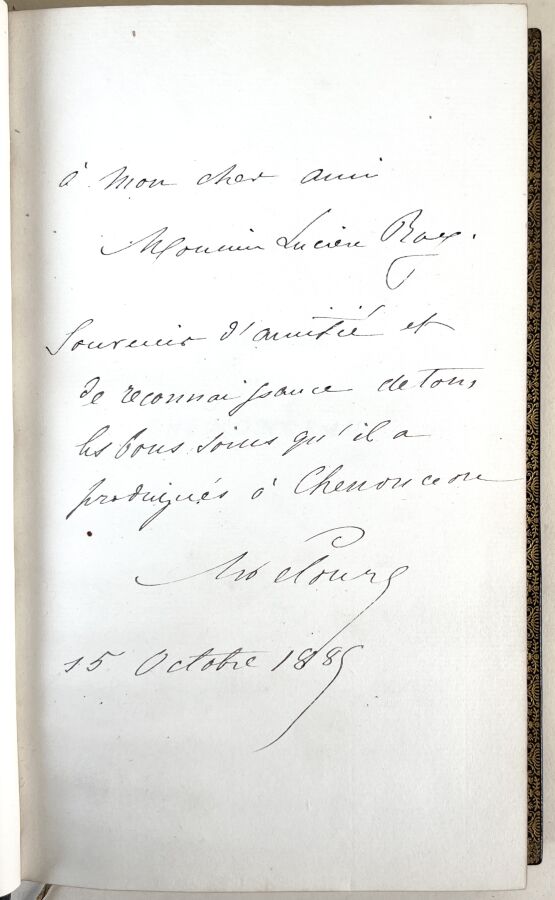 à mon cher ami
Monsieur Lucien
Souvenir d'amitié et
de reconnaissance de tous
les bons soins qu'il a
prodigués à Chenonceau
15 Octobre 188